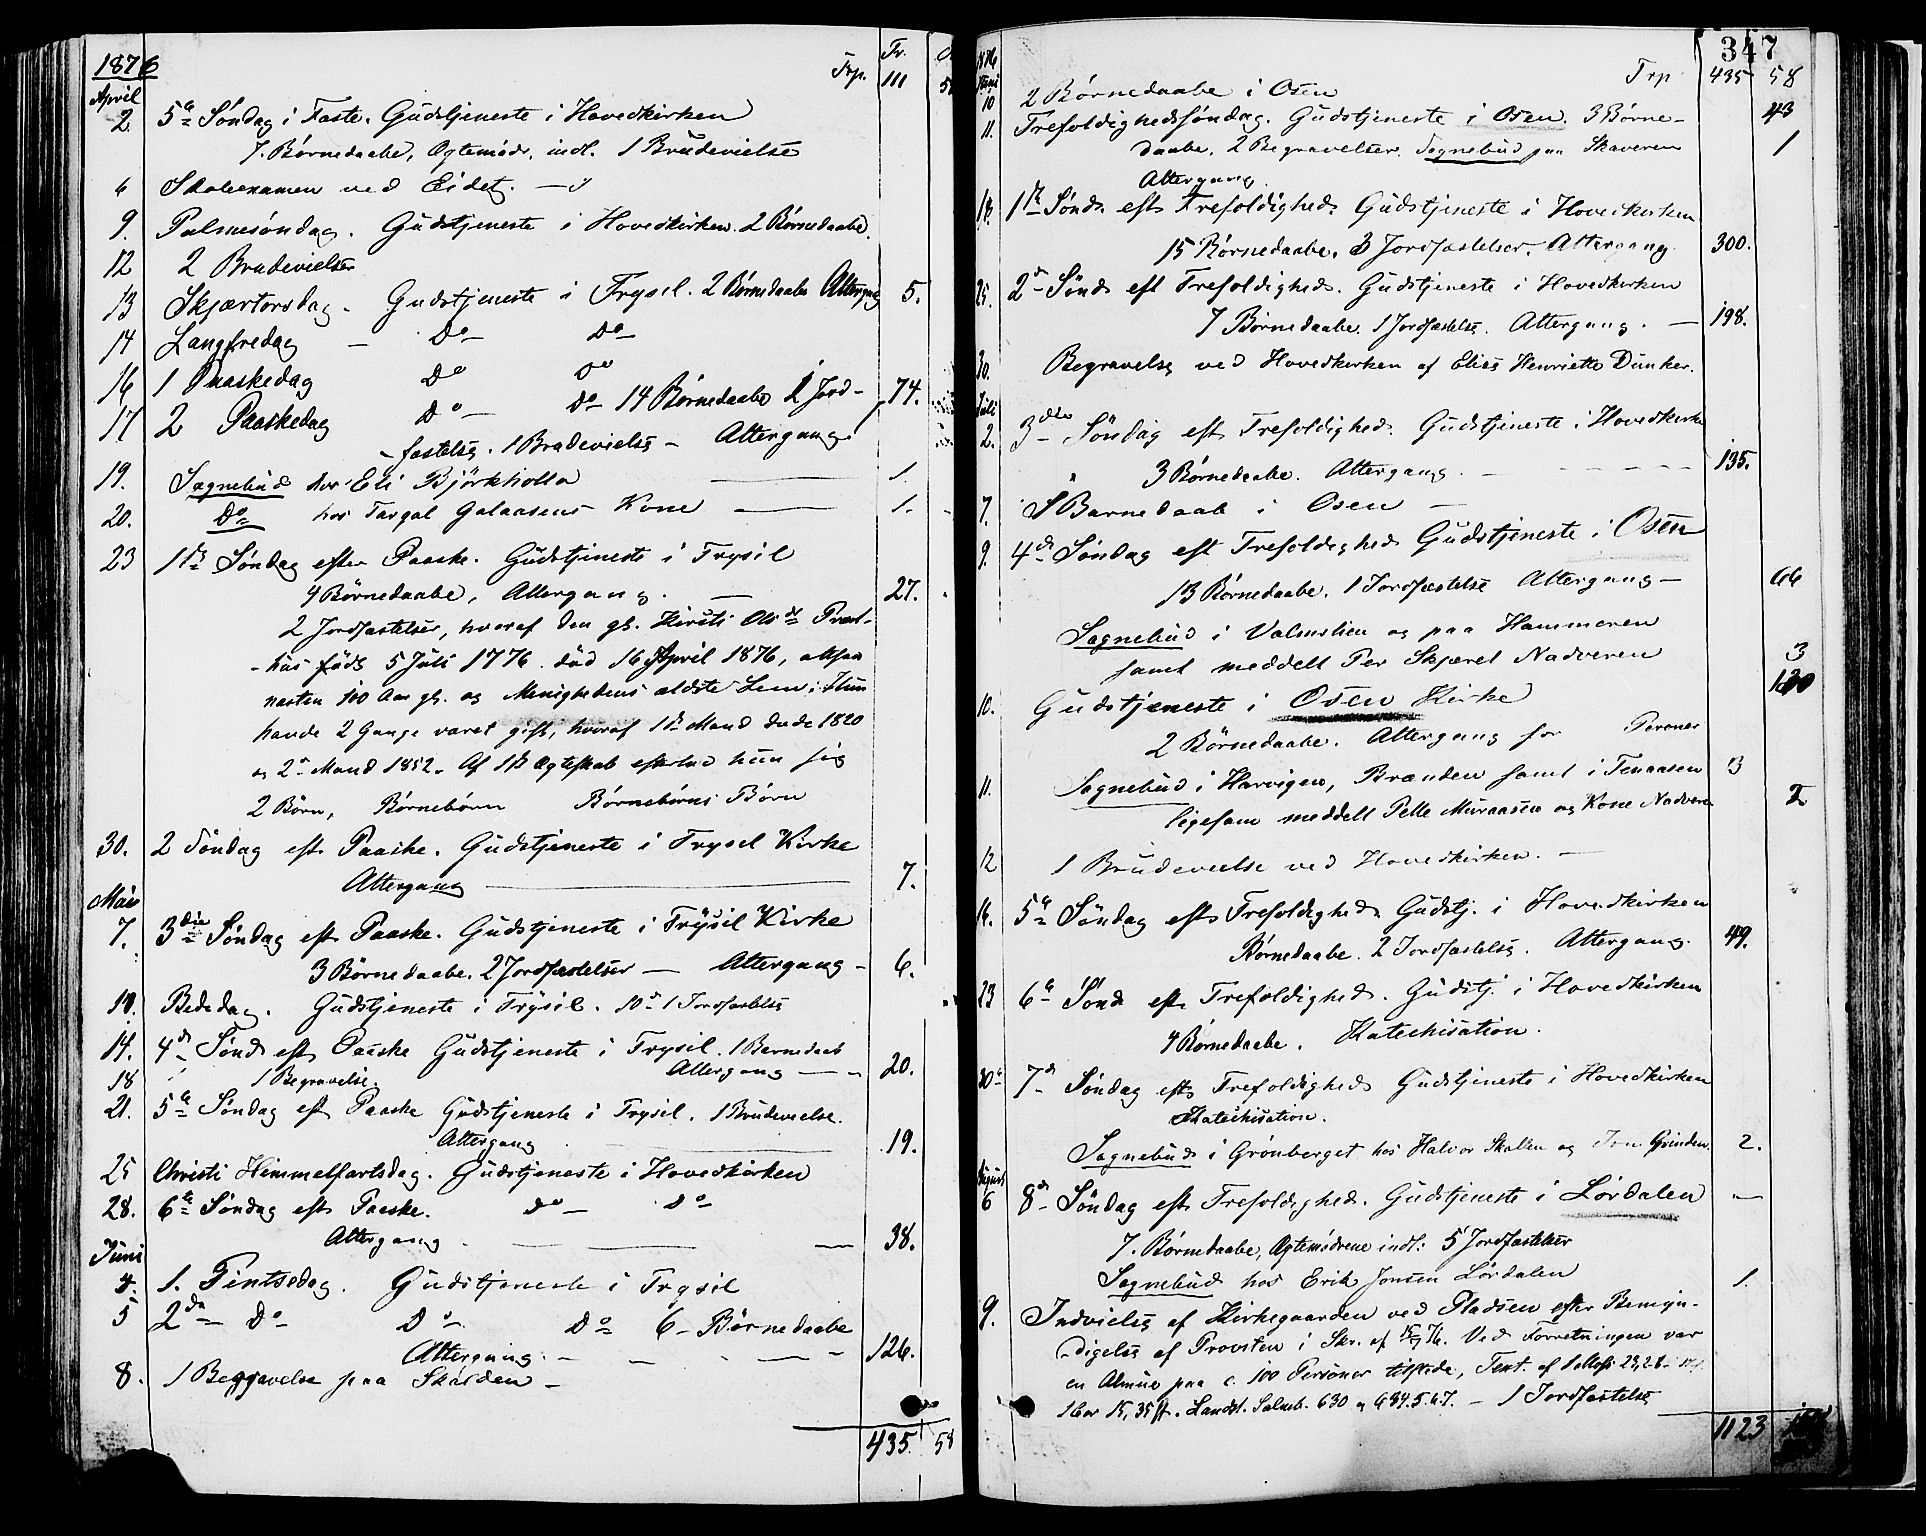 1876
Trp. Fr. 111
April
2. 5te Söndag i Faste. Gudstjeneste i Hovedkirken
7. Börnedaabe, Ægtemödr. indl. 1 Brudevielse
6 Skoleexamen ved Eidet.
9. Palmesöndag. Gudstjeneste i Hovedkirken. 2 Börnedaabe.
12 2 Brudevielser
13 Skjærtorsdag. Gudstjeneste i Trysil. 2 Börnedaabe Altergang 5.
14 Langfredag – Do – Do –
16 1 Paaskedag Do Do
17 2 Paaskedag Do – Do – 14 Börnedaabe 1 Jord- 74.
fæstelse. 1 Brudevielse – Altergang
19. Sognebud hos Eli Björkholla 1.
20. Do hos Targal Galaasens Kone 1.
23 1ste Söndag efter Paaske. Gudstjeneste i Trysil
4 Börnedaabe, Altergang. 27.
2 Jordfæstelser, hvoraf den gl. Kirsti Olsdr Præst-
hus född 5 Juli 1776. död 16 April 1876, altsaa
næsten 100 Aar gl. og Menighedens ældste Lem. Hun
havde 2 Gange været gift, hvoraf 1ste Mand döde 1820
og 2den Mand 1852. Af 1ste Ægteskab efterlod hun sig
2 Börn, Börnebörn Börnebörns Börn
30. 2 Söndag eft Paaske. Gudstjeneste i Trysil Kirke
Altergang 7.
Mai
7. 3die Söndag eft Paaske. Gudstjeneste i Trysil Kirke
3 Börnedaabe. 2 Jordfæstelser – Altergang – 6.
10. Bededag. Gudstjeneste i Trysil. 10de 1 Jordfæstelse
14. 4de Sönd eft Paaske Gudstjeneste i Trysil. 1 Barnedaab
18 1 Begravelse. Altergang – 20.
21. 5te Söndag eft Paaske Gudstjeneste i Trysil. 1 Brudevielse.
Altergang 19.
25 Christi Himmelfartsdag. Gudstjeneste i Hovedkirken
28. 6te Söndag eft Paaske. Do – Do –
Altergang 38.
Juni
4. 1. Pintsedag. Gudstjeneste i Trysil
5 2den – Do – Do – Do – 6 – Börnedaabe
Altergang. 126.
8. 1 Begravelse paa Skalden –
435. 58
347
1876 Trp 435 58
Juni
10 2 Börnedaabe i Osen
11. Trefoldighedssöndag. Gudstjeneste i Osen. 3 Börne- 43
daabe. 2 Begravelser. Sognebud paa Skaveren 1
Altergang.
18. 1ste Sönd. eft Trefoldighed. Gudstjeneste i Hovedkirken
15 Börnedaabe. 3 Jordfæstelser. Altergang. 300.
25. 2den Sönd eft Trefoldighed. Gudstjeneste i Hovedkirken
7 Börnedaabe. 1 Jordfæstelse. Altergang. – 198.
30. Begravelse ved Hovedkirken af Elise Henriette Dunker.
Juli
2. 3die Söndag eft Trefoldighed. Gudstjeneste i Hovedkirke
3 Börnedaabe. Altergang. 135.
7. 1 Barnedaab i Osen –
9. 4de Söndag eft Trefoldighed Gudstjeneste i Osen
13 Börnedaabe. 1 Jordfæstelse Altergang – 66
Sognebud i Valmslien og paa Hammeren
samt meddelt Per Skjæret Nadveren 3
10. Gudstjeneste i Osen Kirke
2 Börnedaabe. Altergang for Personer
11. Sognebud i Harvigen, Brænden samt i Tenaasen 3
ligesom meddelt Pelle Muraasen og Kone Nadvere 2
12 1 Brudevielse ved Hovedkirken. –
16. 5te Söndag eft Trefoldighed Gudstj. i Hovedkirken
Börnedaabe. 2 Jordfæstelse. Altergang. 49.
23 6te Sönd eft Trefoldighed. Gudstj. i Hovedkirken
4 Börnedaabe. Katechisation.
30te 7de Söndag eft Trefoldighed Gudstjeneste i Hovedkirken
Katechisation.
Sognebud i Grönberget hos Halvor Skallen og Jon Grinden. 2.
August
6 8de Söndag eft Trefoldighed. Gudstjeneste i Lördalen –
7. Börnedaabe, Ægtemödrene indl: 5 Jordfæstelser
Sognebud hos Erik Jonsen Lördalen 1.
9. Indvielse af Kirkegaarden ved Pladsen efter Bemyn-
digelse af Provsten i Skr. af 76. Ved Forretningen var
en Almue paa c. 100 Personer tilstede, Text. af 1 Mos: 23,
1 Cor 15, 35 ff. Landst. Salmeb. 630 og 684.5.6.7. – 1 Jordfæstelse
1123